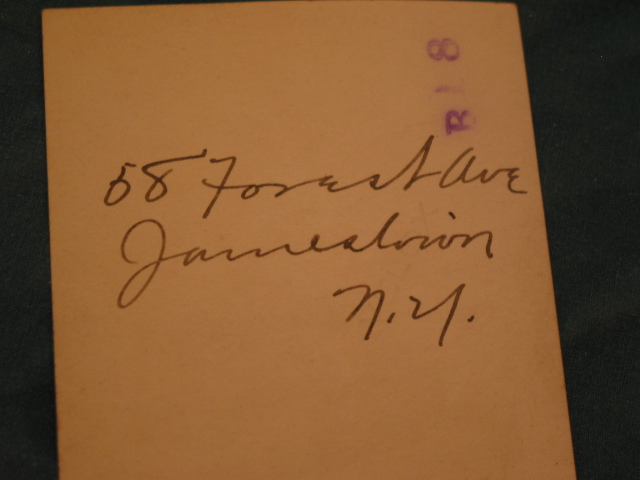 B 18
58 Forest Ave
Jamestown
N.Y.